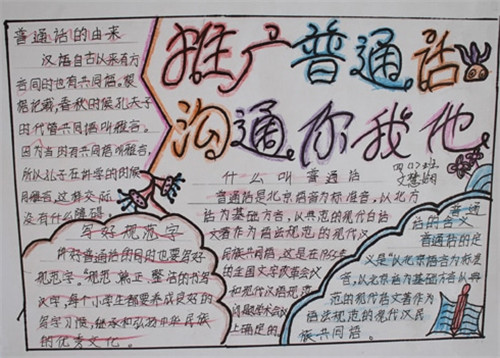 推广普通话
沟通你我他
四(7)班
文慧娴
普通话的由来
汉语自古以来有方
言同时也有共同语。根
据记载,春秋时候孔夫子
时代管共同语叫雅言。
因为当时有共同语叫雅言,
所以孔子在讲学的时候
用雅言,这样交际
没有什么障碍。
写好规范字
许好普通话的同时也要写好
规范字。"规范、端正、整洁的书写
汉字,每个小学生都要养成良好的
写字习惯,继承和弘扬中华民族
的优秀文化。
什么叫普通话
普通话是北京语音为标准音,以北方
话为基础方言,以典范的现代白话
文著作为语法规范的现代汉
民族共同语,这是在1955年
的全国文字改革会议
和现代汉语规范
问题学术会议
上确定的。
普通
话的含义
普通话的定
义是"以北京语音为标准
音,以北京话为基础方言以典
范的现代话文著作为
语法规范的现代汉民
族共同语。